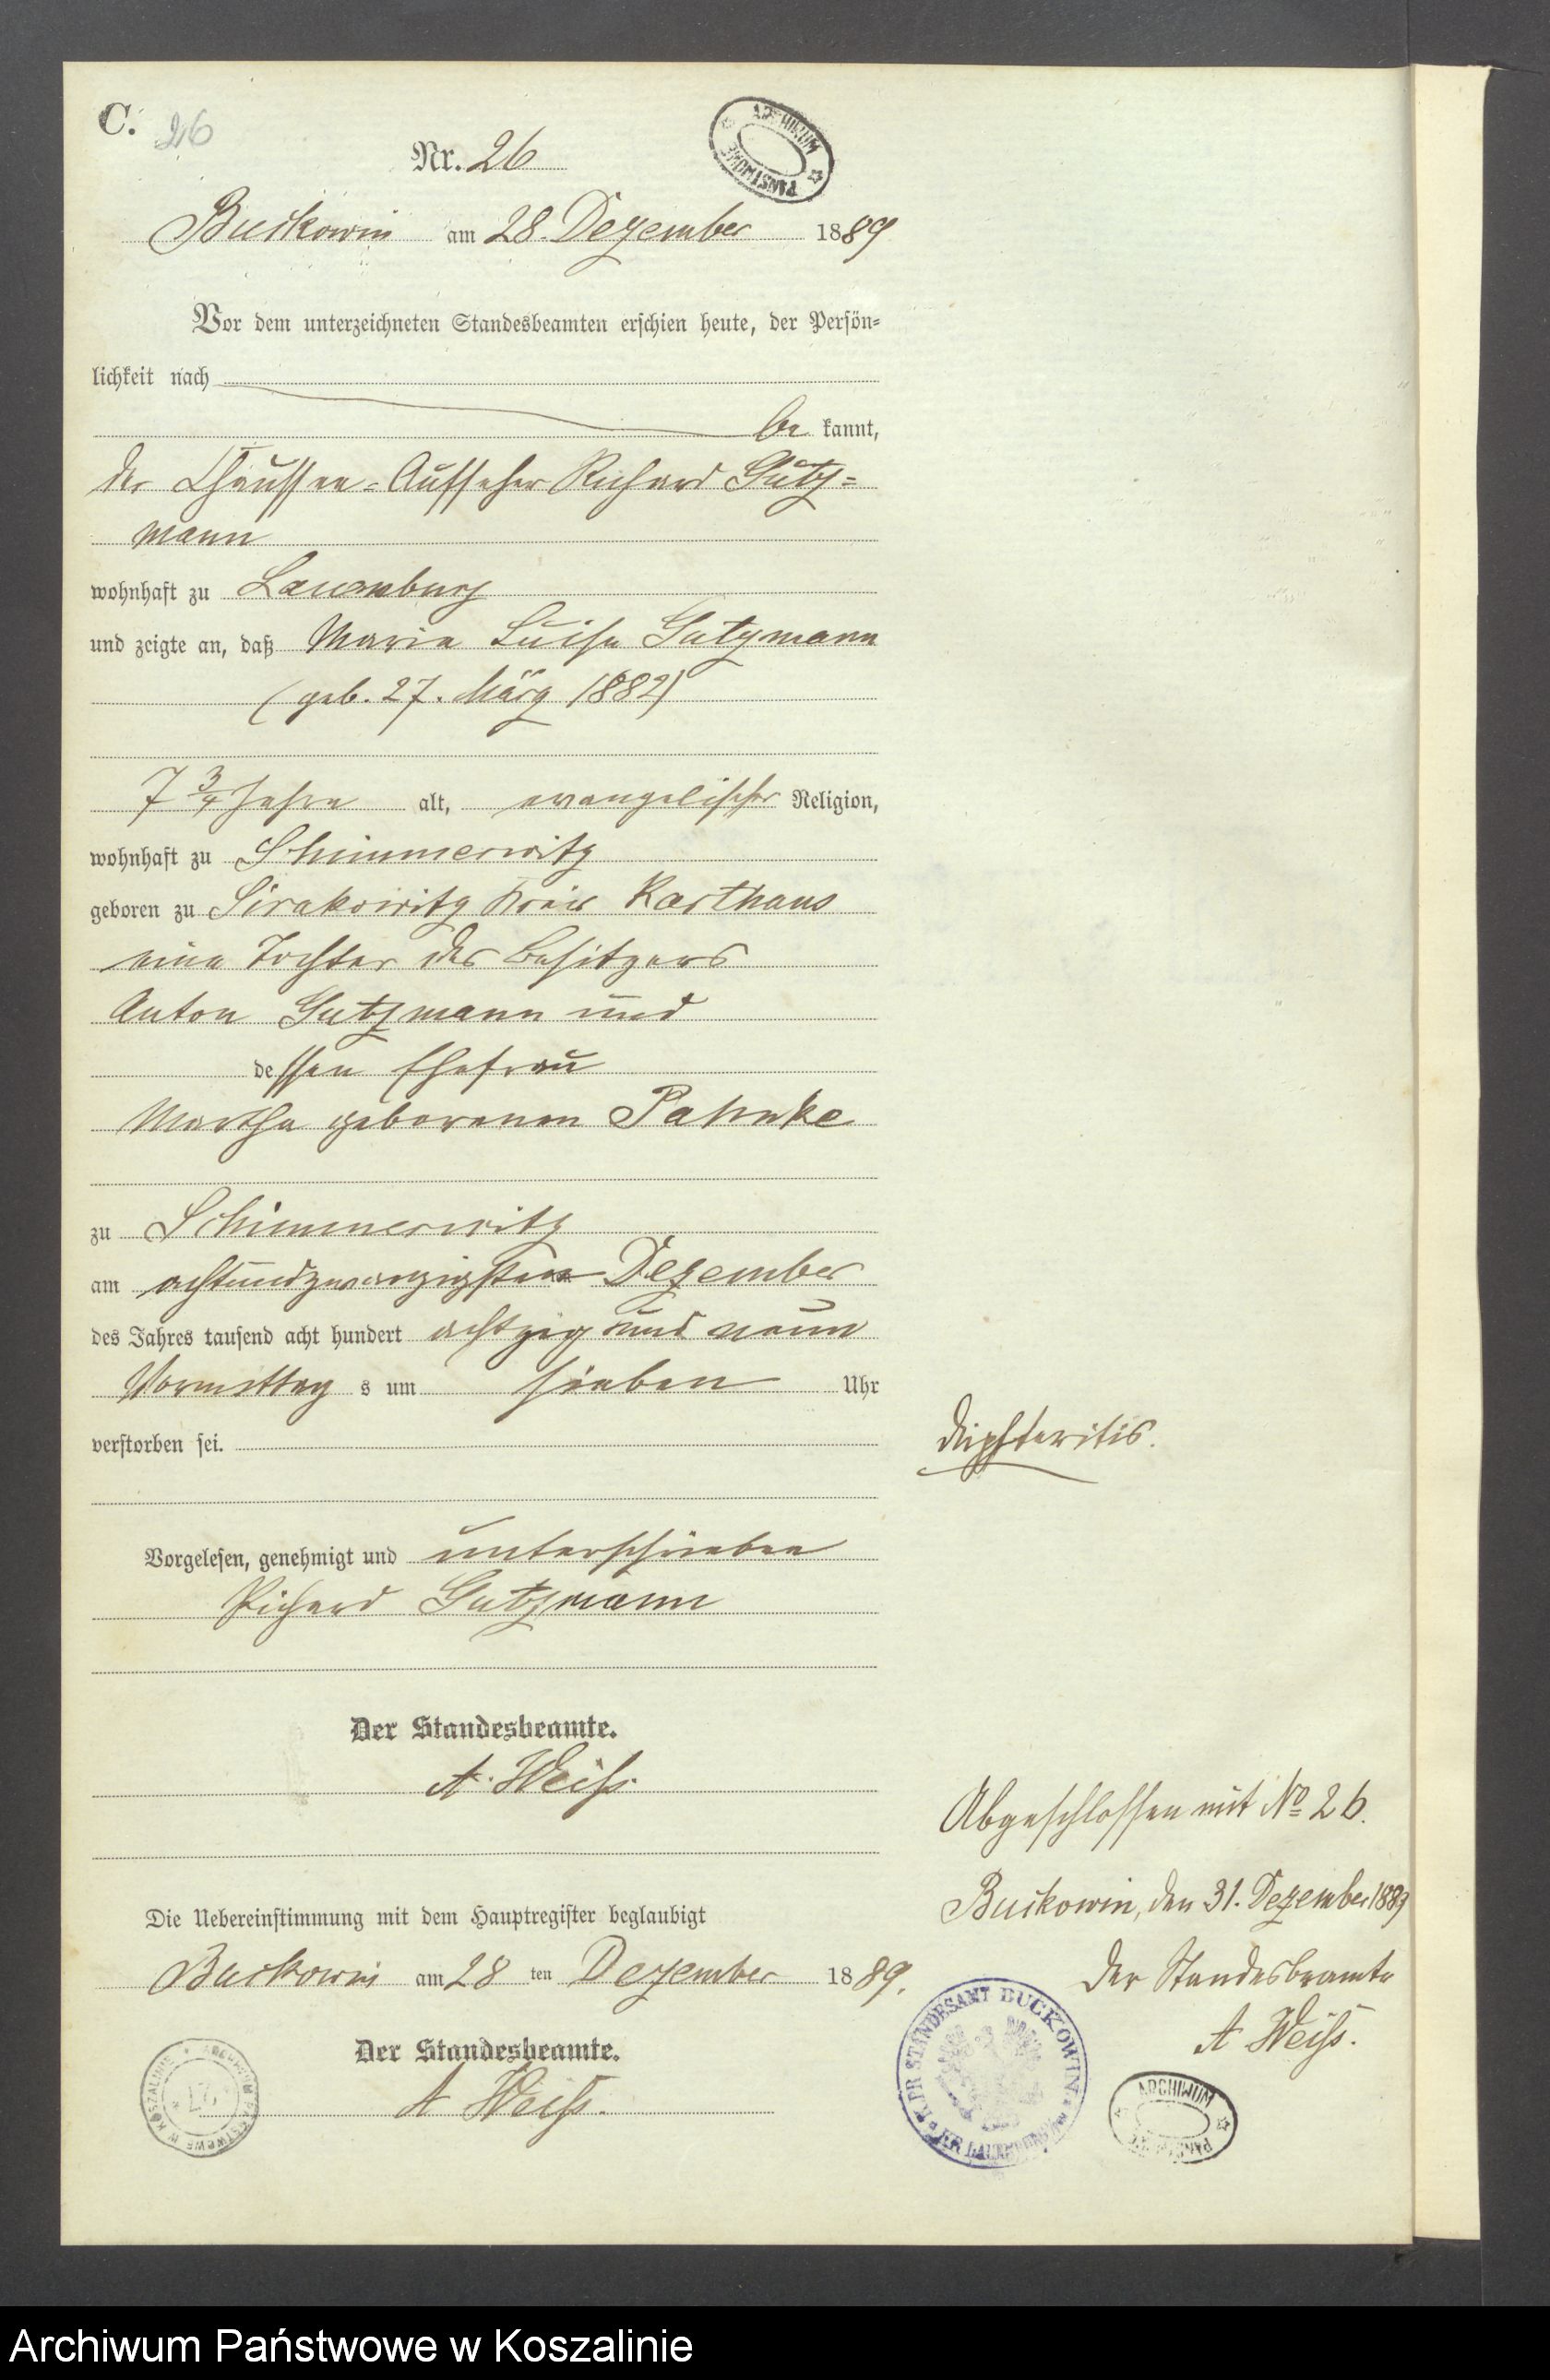 C. 26
Nr. 26
ARCHIWUM PAŃSTWOWE
Buckowin am 28. Dezember 1889
Vor dem unterzeichneten Standesbeamten erschien heute, der Persön-
lichkeit nach
be kannt,
der Chaussee-Aufseher Richard Gutz-
mann
wohnhaft zu Lauenburg
und zeigte an, daß Maria Luise Gutzmann
(geb. 27. März 1882)
7 3/4 Jahre alt, evangelischer Religion,
wohnhaft zu Schimmerwitz
geboren zu Sirakowitz Kreis Karthaus
eine Tochter des Besitzers
Anton Gutzmann und
dessen Ehefrau
Martha geborenen Pahnke
zu Schimmerwitz
am achtundzwanzigsten Dezember
des Jahres tausend acht hundert achtzig und neun
Vormittag s um sieben Uhr
verstorben sei.
Dipfteritis.
Vorgelesen, genehmigt und unterschrieben
Richard Gutzmann
Der Standesbeamte.
A. Weiß.
Abgeschlossen mit No 26.
Buckowin, den 31. Dezember 1889
Der Standesbeamte
A Weiß.
Die Uebereinstimmung mit dem Hauptregister beglaubigt
Buckowin am 28 ten Dezember 1889.
Der Standesbeamte.
A Weiß.
K. PR STANDESAMT BUCKOWIN
KR. LAUENBURG
ARCHIWUM PAŃSTWOWE W KOSZALINIE
ARCHIWUM PAŃSTWOWE
Archiwum Państwowe w Koszalinie